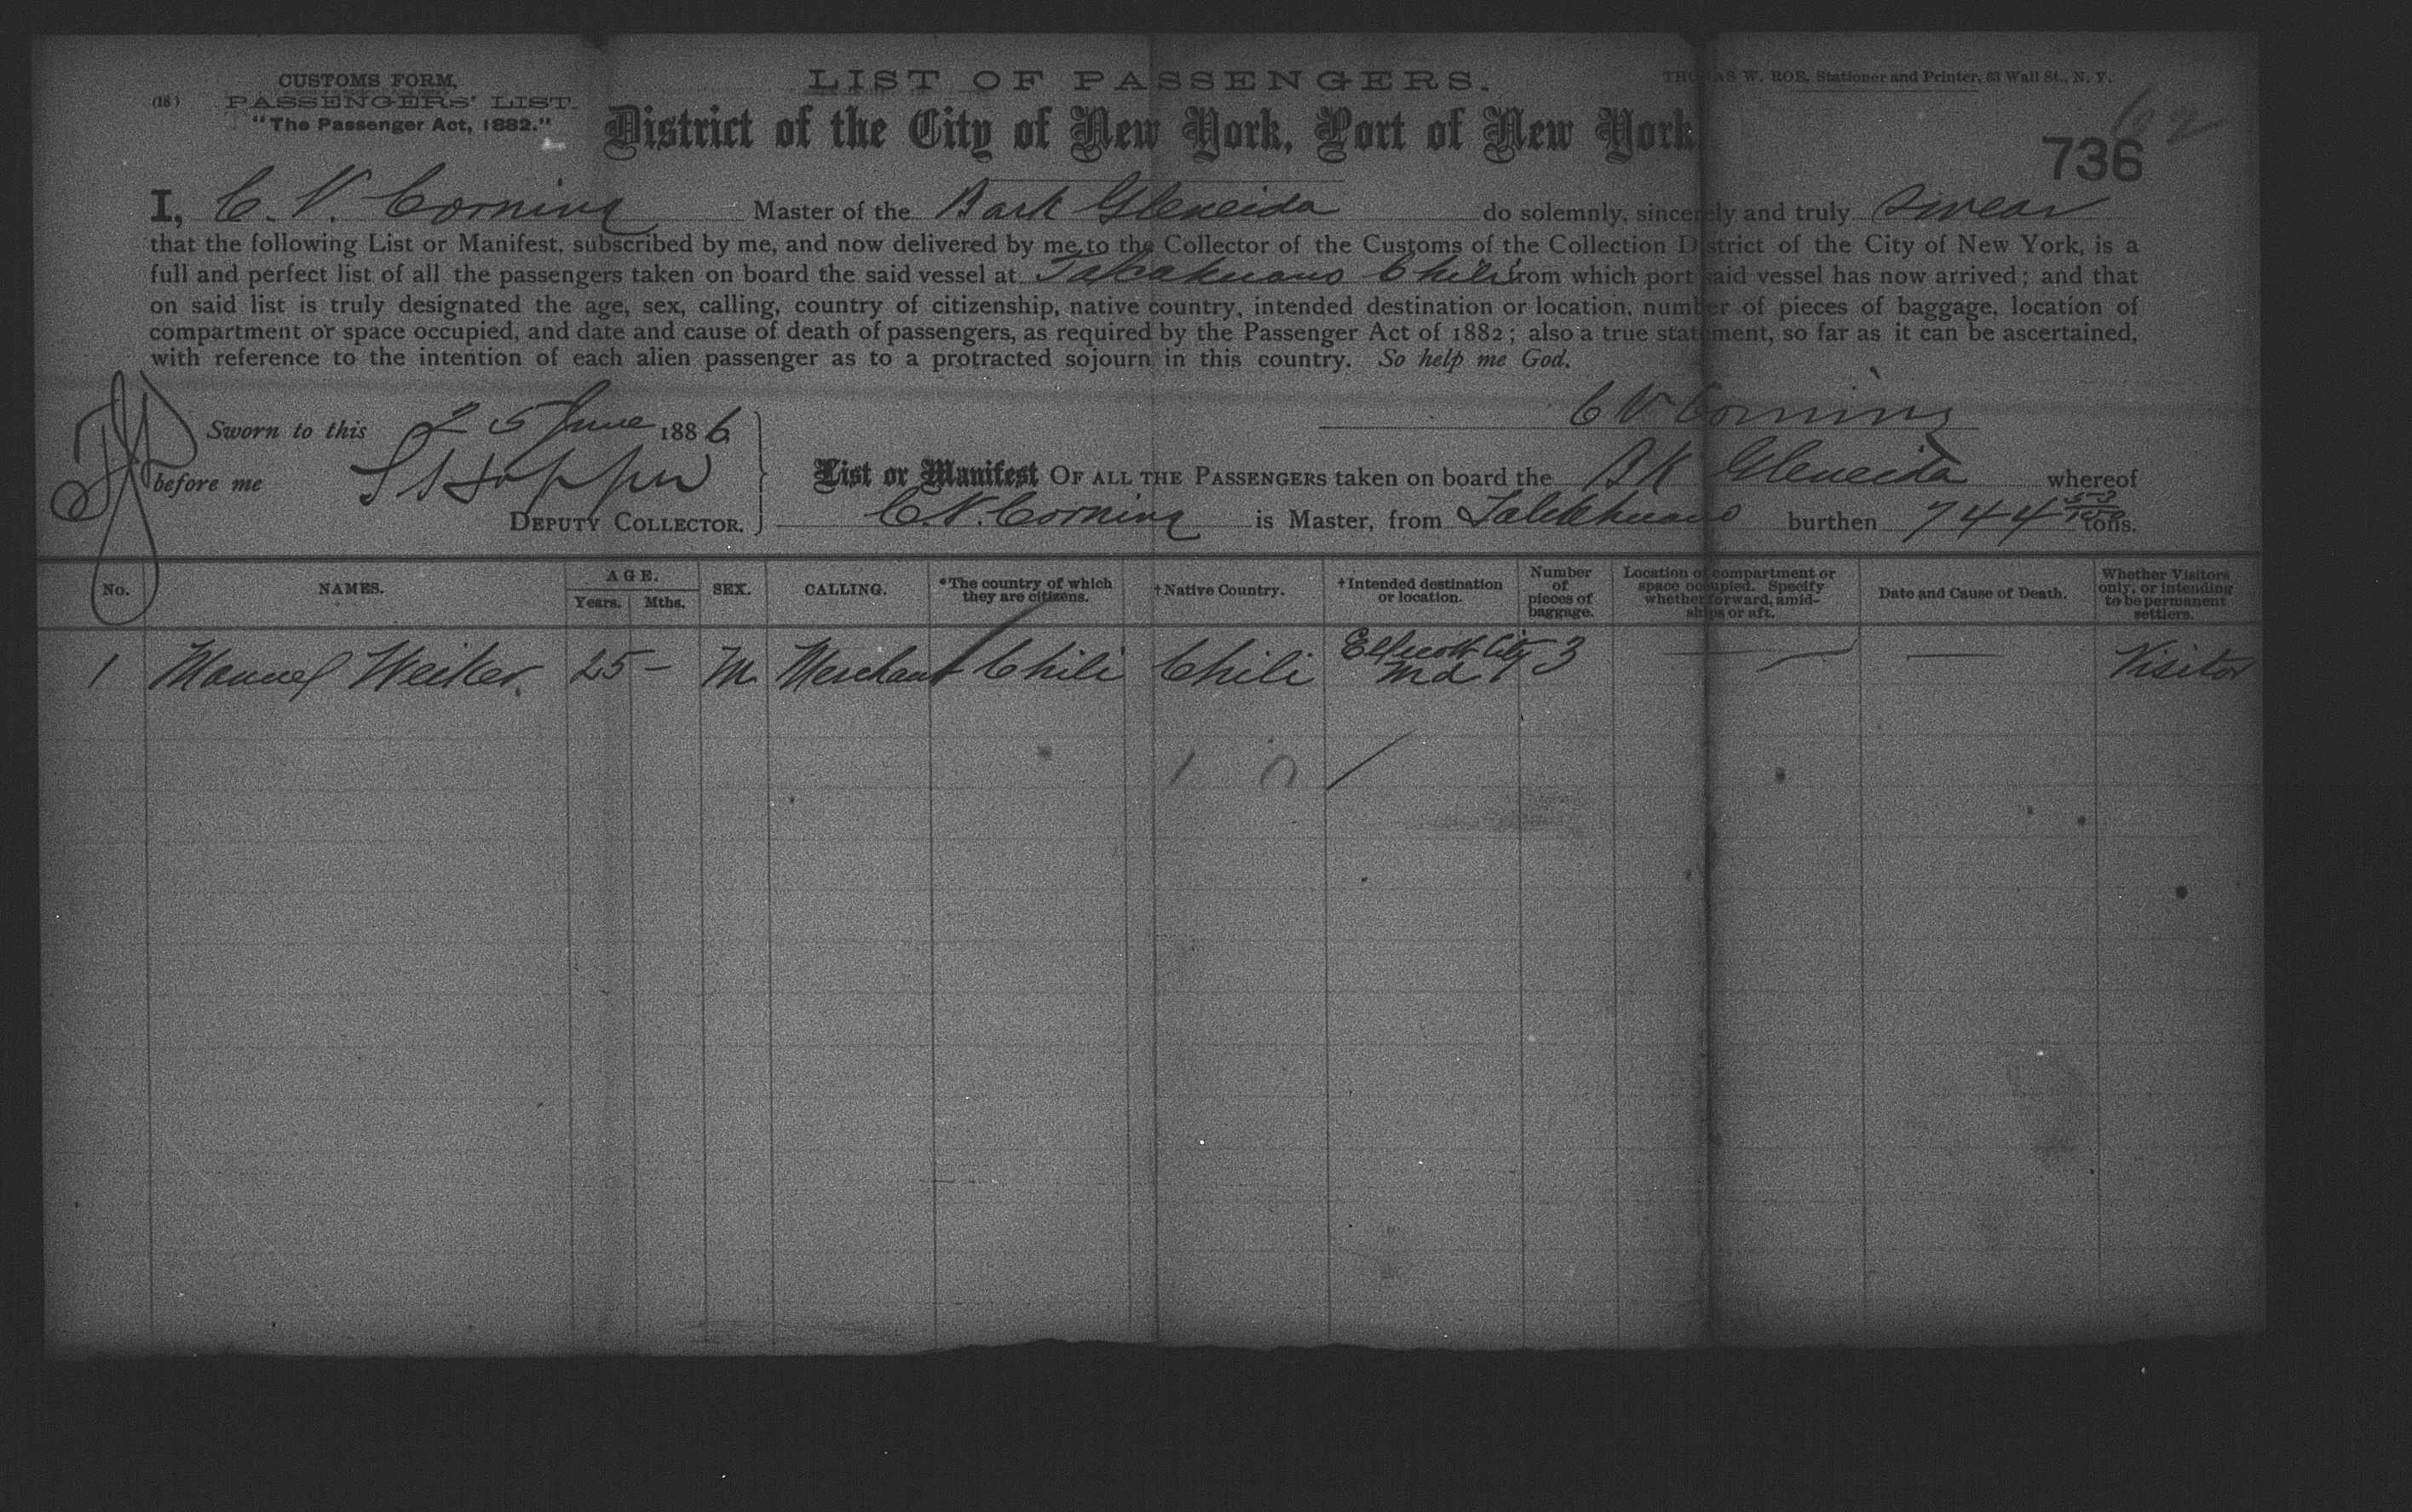 CUSTOMS FORM.
(16) PASSENGERS' LIST.
"The Passenger Act, 1882."
LIST OF PASSENGERS.
THOMAS W. ROE, Stationer and Printer, 63 Wall St., N. Y.
District of the City of New York, Port of New York
62
736
I, C. V. Corning Master of the Bark Gleneida do solemnly, sincerely and truly swear
that the following List or Manifest, subscribed by me, and now delivered by me to the Collector of the Customs of the Collection District of the City of New York, is a
full and perfect list of all the passengers taken on board the said vessel at Talcahuano Chili from which port said vessel has now arrived; and that
on said list is truly designated the age, sex, calling, country of citizenship, native country, intended destination or location, number of pieces of baggage, location of
compartment or space occupied, and date and cause of death of passengers, as required by the Passenger Act of 1882; also a true statement, so far as it can be ascertained,
with reference to the intention of each alien passenger as to a protracted sojourn in this country. So help me God.
C V Corning
Sworn to this 25 June 1886
before me
DEPUTY COLLECTOR.
List or Manifest OF ALL THE PASSENGERS taken on board the Bk Gleneida whereof
C. V. Corning is Master, from Talcahuano burthen 744 53/100 tons.
No. NAMES. AGE. Years. Mths. SEX. CALLING. *The country of which they are citizens. †Native Country. †Intended destination or location. Number of pieces of baggage. Location of compartment or space occupied. Specify whether forward, amidships or aft. Date and Cause of Death. Whether Visitors only, or intending to be permanent settlers.
1 Manuel Weiker 25 – M Merchant Chili Chili Ellicott City Md 3 — — Visitor